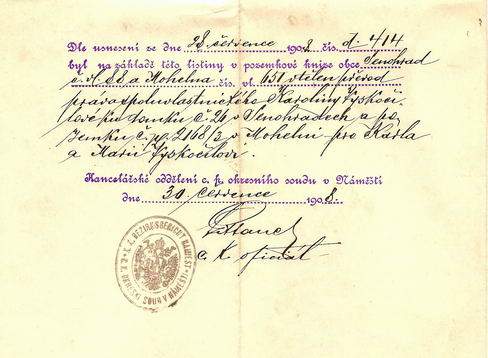 Dle usnesení ze dne 28 července 1908 čís. d. 414
byl na základě této listiny v pozemkové knize obce Senohrad
č. vl. 88 a Mohelna čís. vl. 651 vtělen převod
práva spoluvlastnického Karoliny Vyskoči-
lové ku domku č. 26 v Senohradech a po-
zemku č. p. 2168/3 v Mohelni pro Karla
a Marii Vyskočilovi.
Kancelářské oddělení c. k. okresního soudu v Náměšti
dne 30 července 1908.
c. k. oficiál
K. K. BEZIRKSGERICHT NAMIEST
C. K. OKRESNÍ SOUD V NÁMĚŠTI